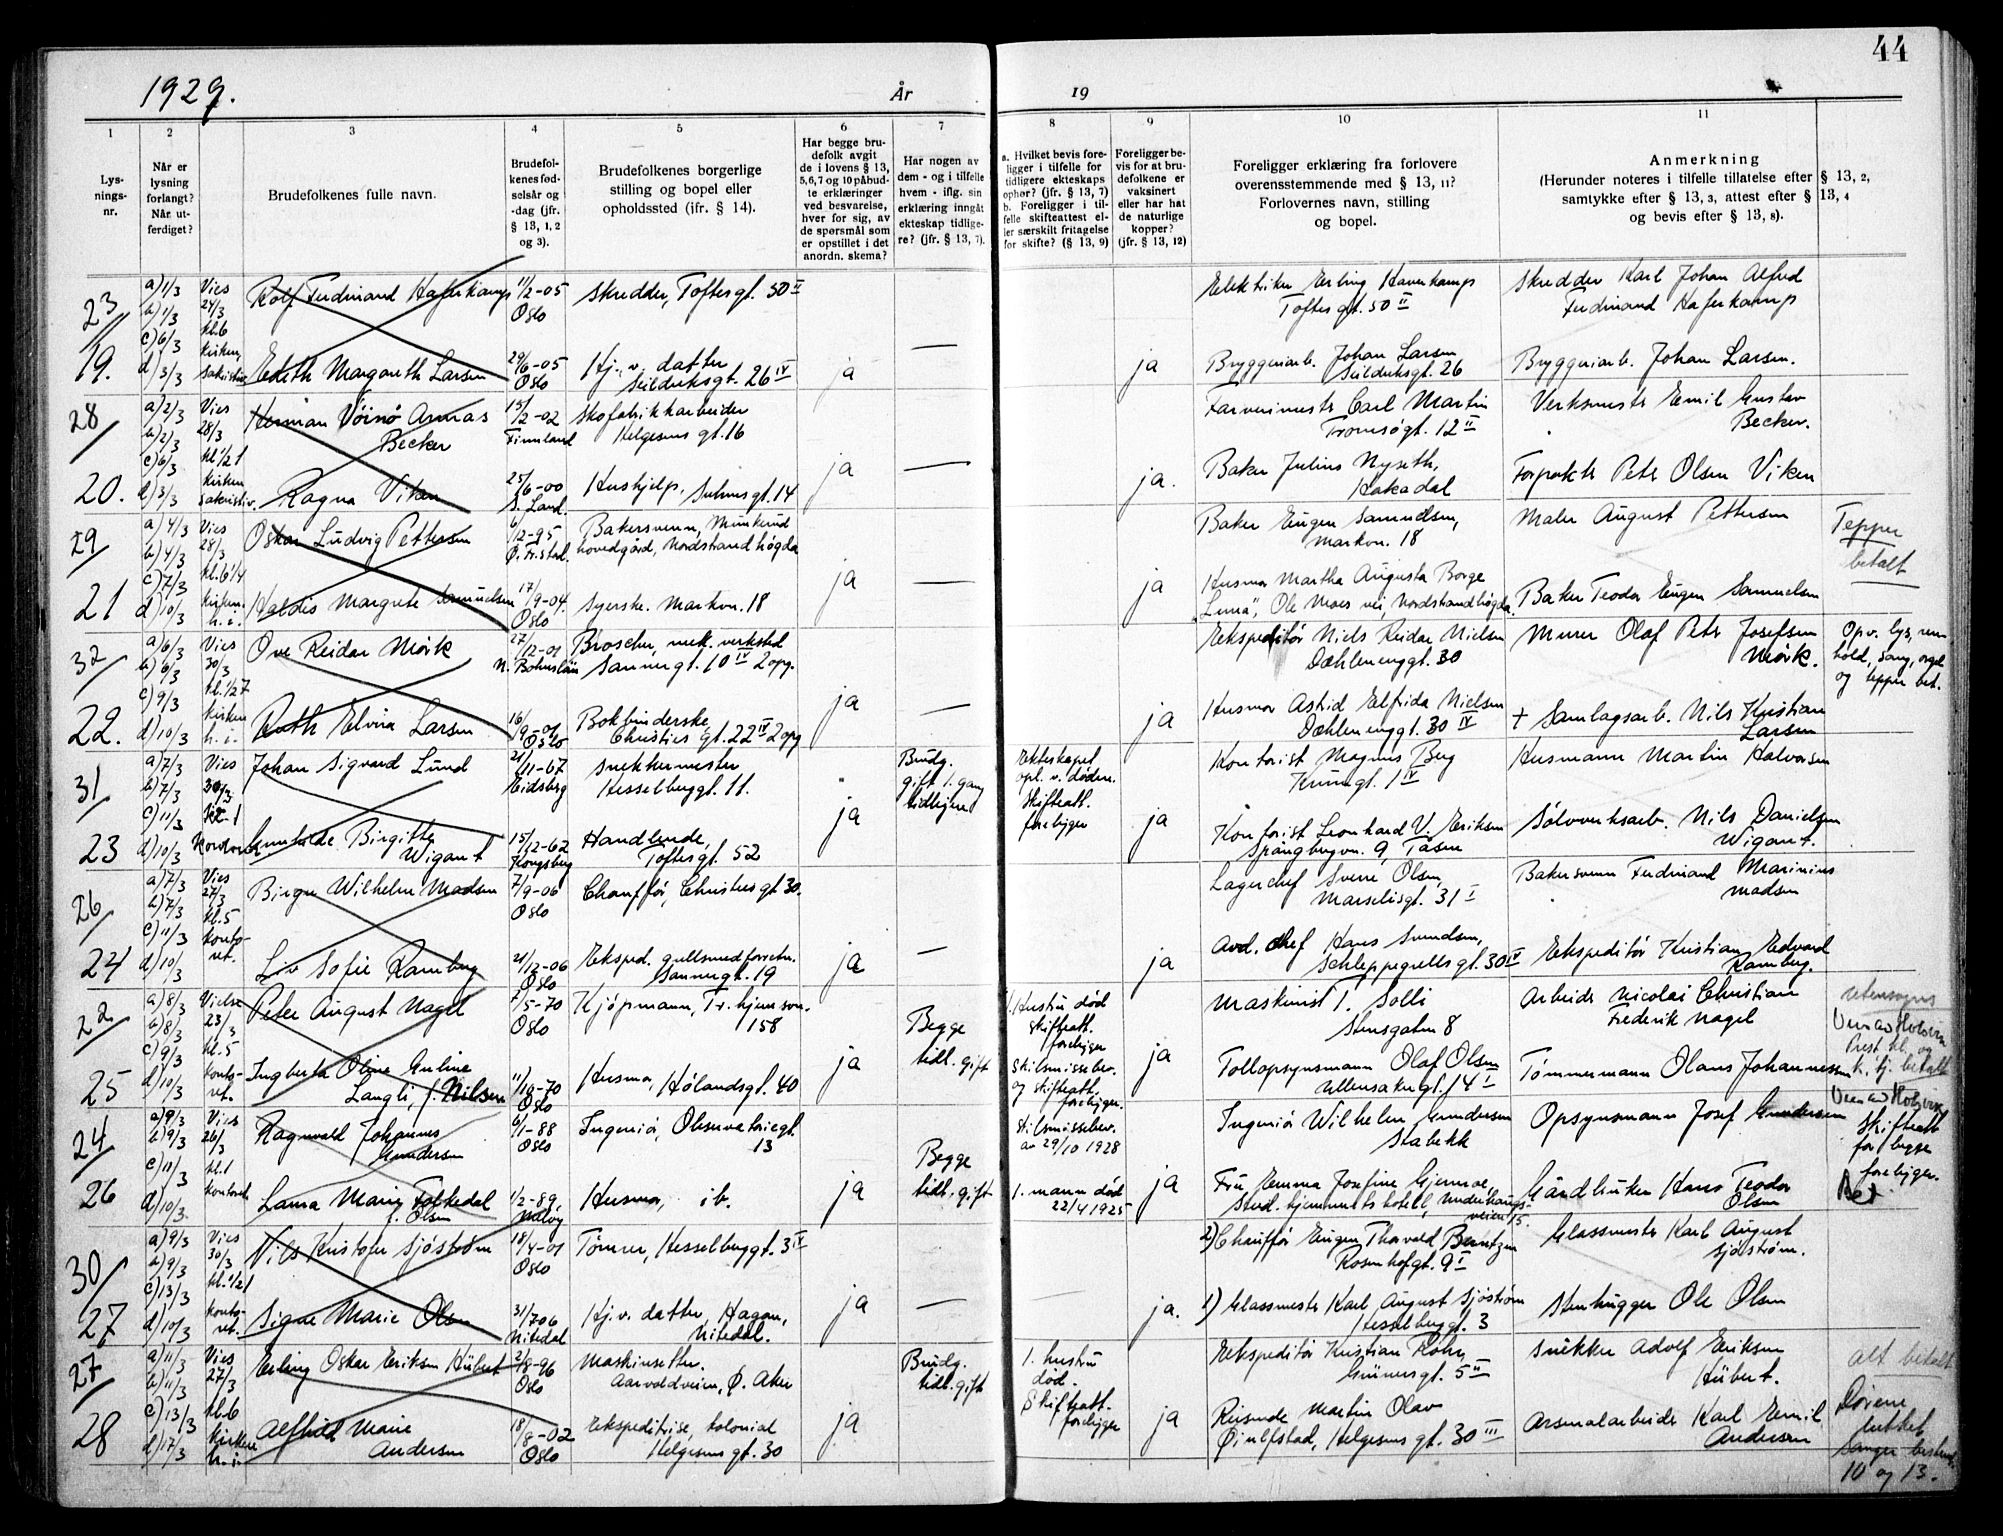 44
1929.
År
19
1
Lys-
nings-
nr.
2
Når er
lysning
forlangt?
Når ut-
ferdiget?
3
Brudefolkenes fulle navn.
4
Brudefol-
kenes fød-
selsår og
-dag (jfr.
§ 13, 1, 2
og 3).
5
Brudefolkenes borgerlige
stilling og bopel eller
opholdssted (jfr. § 14).
6
Har begge bru-
defolk avgit
de i lovens § 13,
5, 6, 7 og 10 påbud-
te erklæringer
ved besvarelse,
hver for sig, av
de spørsmål som
er opstillet i det
anordn. skema?
7
Har nogen av
dem - og i tilfelle
hvem - iflg. sin
erklæring inngåt
ekteskap tidlige-
re? (jfr. § 13, 7).
8
a. Hvilket bevis fore-
ligger i tilfelle for
tidligere ekteskaps
ophør? (jfr. § 13, 7)
b. Foreligger i til-
felle skifteattest el-
ler særskilt fritagelse
for skifte? (§ 13, 9)
9
Foreligger be-
vis for at bru-
defolkene er
vaksinert
eller har hat
de naturlige
kopper?
(jfr. § 13, 12)
10
Foreligger erklæring fra forlovere
overensstemmende med § 13, 11?
Forlovernes navn, stilling
og bopel.
11
Anmerkning
(Herunder noteres i tilfelle tillatelse efter § 13, 2,
samtykke efter § 13, 3, attest efter § 13, 4
og bevis efter § 13, 8).
23
19.
a) 1/3
b) 1/3
c) 6/3
d) 3/3
Vies
24/3
kl. 6
kirken,
Rolf Ferdinand Haferkamp
11/2-05
Oslo
Skredder, Toftesgt. 50 II
Elektriker Erling Haverkamp
Toftesgt. 50 II
Skredder Karl Johan Alfred
Ferdinand Haferkamp
Edith Margareth Larsen
29/6-05
Oslo
Hj. v. datter
Seilduksgt. 26 IV
ja
—
ja
Bryggeriarb. Johan Larsen
Seilduksgt. 26
Bryggeriarb. Johan Larsen.
28
20.
a) 2/3
b) 2/3
c) 6/3
d) 3/3
Vies
28/3
kl 1/2 1
kirken
sakristiv.
Herman Vöinö Armas
Becker
15/2-02
Finnland
Skofabrikkarbeider
Helgesens gt. 16
Farverimester Carl Martin
Tromsøgt. 12 II
Verksmester Emil Gustav
Becker.
Ragna Viken
25/6-00
S. Land.
Hushjelp,
ja
—
ja.
Baker Julius Nyseth,
Hakadal
Forpakter Peter Olsen Viken
29
21
a) 4/3
b) 4/3
c) 7/3
d) 10/3
Vies
28/3
kl. 6 1/4
kirken
h. i.
Oskar Ludvig Pettersen
6/12-95
Ø. Fr.stad.
Bakersvenn, Munkerud
hovedgård, Nordstrandhøgda
Baker Eugen Samuelsen,
Markvn. 18
Maler August Pettersen
Tepper
betalt
Haldis Margrete Samuelsen
17/9-04.
Oslo
Syerske. Markvn. 18
ja
—
ja
Husmor Martha Augusta Borge
"Luna", Ole Moes vei, Nordstrandhøgda.
Baker Teodor Eugen Samuelsen
32
22.
a) 6/3
b) 6/3
c) 9/3
d) 10/3
Vies
30/3
kl. 1/2 7
kirken
h. i.
Ove Reidar Mörk
27/12-01
N. Bohuslän
Broscher, mek. verksted
Sannergt. 10 IV 2 opg.
Ekspeditør Niels Reidar Nielsen
Dæhlenenggt. 30
Murer Olaf Peter Josefsen
Mörk.
Opv. lys, ren
hold, sang, orgel
og tepper bet.
Ruth Elvira Larsen
16/9-01
Oslo
Bokbinderske
Christies gt. 22 IV 2 opg
ja
—
ja
Husmor Astrid Elfrida Nielsen
Dæhlenenggt. 30 IV
+ Samlagsarb. Nils Kristian
Larsen
31
23
a) 7/3
b) 7/3
c) 11/3
d) 10/3
Vies
30/3
kl. 1
Kontoret
Johan Sigvard Lund
21/11-67
Eidsberg
Snekkermester
Hesselberggt. 11.
ja
Brudg.
gift 1. gang
tidligere
Ekteskapet
opl. v. døden.
Skifteatt.
foreligger
ja
Kontorist Magnus Berg
Krumgt. 1 IV
Husmann Martin Halvorsen
Gunhilde Birgitte
Wigant
15/12-62
Kongsberg
Handlende,
Toftesgt. 52
Kontorist Leonhard V. Eriksen
Spångbergvn. 9, Tåsen
Sølvverksarb. Nils Danielsen
Wigant.
26
24
a) 7/3
b) 7/3
c) 11/3
d) 10/3
Vies
27/3
kl. 5
konto-
ret.
Birger Wilhelm Madsen
7/9-06
Oslo
Chauffør, Christies gt 30.
Lagerchef Sverre Olsen,
Marselisgt. 31 I
Bakersvenn Ferdinand Marinius
Madsen
Liv Sofie Ramberg
21/12-06
Oslo
Eksped. gullsmedforretn.
Sannergt. 19
ja
—
ja
Avd. chef Hans Svendsen,
Schleppegrells gt. 30 IV
Ekspeditør Kristian Edvard
Ramberg.
22
25
a) 8/3
b) 8/3
c) 9/3
d) 10/3
Vielse
23/3
kl. 5
konto-
ret.
Peter August Nagel
7/5-70
Oslo
Kjöpmann, Tr.hjemsvn.
158
ja
Begge
tidl. gift
Hustru død
Skifteatt.
foreligger
Skilsmissebev.
og skifteatt.
foreligger.
ja
Maskinist I. Solli
Stensgaten 8
Arbeider Nicolai Christian
Frederik Nagel
Ingberta Oline Guline
Langli, f. Nilsen
11/10-70
Oslo
Husmor, Hølandsgt. 40
Tollopsynsmann Olaf Olsen
Ullensakergt. 14 I
Tømmermann Olaus Johannessen
24
26
a) 9/3
b) 9/3
c) 11/3
d) 10/3
Vies
26/3
kl. 1
kontoret
Ragnvald Johannes
Gundersen
6/1-88
Oslo
Ingeniør, Observatoriegt.
13
ja
Begge
tidl. gift
Skilsmissebev.
av 29/10 1928
1. mann død
22/4 1925
ja
Ingeniør Wilhelm Gundersen
Stabekk
Opsynsmann Josef Gundersen
Skifteatt
for begge
foreligger.
Bet.
Laura Marie Folkedal
f. Olsen
1/2-89,
Husmor, ib.
Fru Emma Josefine Gjermoe,
Stud. hjemmets hotell, Underhaugs-
veien 15.
Gårdbruker Hans Teodor
Olsen
30
27
a) 9/3
b) 9/3
c) 13/3
d) 10/3
Vies
30/3
kl. 1/2 1
konto-
ret.
Nils Kristofer Sjöström
18/4-01
Oslo
Tømrer, Hesselberggt. 3 IV
2) Chauffør Eugen Thorvald Berntzen
Rosenhofgt. 9 I
Glassmester Karl August
Sjöström.
Signe Marie Olsen
31/7 06
Nitedal
Hj. v. datter, Hagan,
Nitedal.
ja
—
ja.
1) Glassmester Karl August Sjöström
Hesselberggt. 3
Stenhugger Ole Olsen
27
28
a) 11/3
b) 11/3
c) 13/3
d) 17/3
Vies
27/3
kl. 6
kirken
h. i.
Erling Oskar Eriksen Hübert
2/8-96
Oslo
Maskinsetter.
Aarvoldveien, Ø. Aker
Brudg.
tidl. gift
1. hustru
død.
Skifteatt.
foreligger
Ekspeditør Kristian Rohr,
Grünersgt. 5 II
Snekker Adolf Eriksen
Hübert.
alt betalt
Alfhild Marie
Andersen
18/8-02
Oslo
Ekspeditrise, kolonial
Helgesens gt. 30
ja
ja
Reisende Martin Olav
Øiulfstad, Helgesens gt. 30 III
Arsenalarbeider Karl Emil
Andersen
Dørene
lukket,
10 og 13.